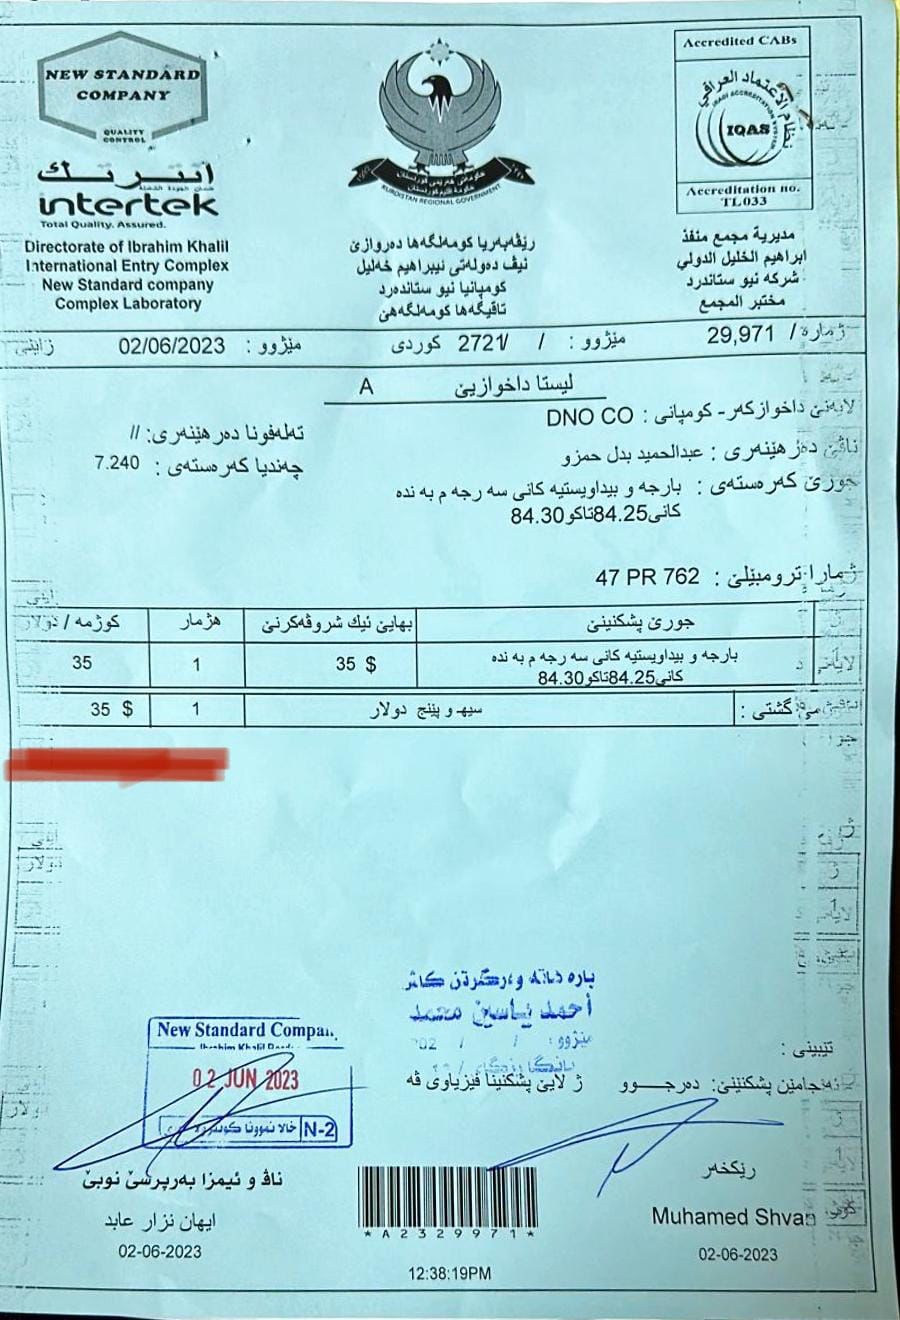 NEW STANDARD
COMPANY
QUALITY
CONTROL
انترتك
intertek
Total Quality. Assured.
Directorate of Ibrahim Khalil
International Entry Complex
New Standard company
Complex Laboratory
KURDISTAN REGIONAL GOVERNMENT
رێڤەبەریا کومەلگەها دەروازێ
نیڤ دەولەتی ئیبراهیم خەلیل
کومپانیا نیو ستاندەرد
تاقیگەها کومەلگەهێ
Accredited CABs
نظام الاعتماد العراقي
IRAQI ACCREDITATION SYSTEM
IQAS
Accreditation no.
TL033
مديرية مجمع منفذ
ابراهيم الخليل الدولي
شركه نيو ستاندرد
مختبر المجمع
ژمارە/ 29,971
مێژوو : / /2721 کوردی
مێژوو : 02/06/2023 زاینی
لیستا داخوازیێ A
لایەنێ داخوازکەر- کومپانی : DNO CO
ناڤێ دەرهێنەری : عبدالحميد بدل حمزو
تەلەفونا دەرهێنەری: //
جورێ کەرەستەی : بارجه و بیداویستیه کانی سه رجه م به نده
کانی84.25تاکو84.30
چەندیا کەرەستەی : 7.240
ژمارا ترومبێلێ : 47 PR 762
جورێ پشکنینێ
بهایێ ئیك شروڤەکرنێ
هژمار
کوژمە / دولار
بارجه و بیداویستیه کانی سه رجه م به نده
کانی84.25تاکو84.30
35 $
1
35
گشتی :
سیهـ و پێنج دولار
1
35 $
باره دانه و وەرگرتن کاتژ
أحمد ياسين محمد
مێژوو: / / 202
New Standard Compan
02 JUN 2023
N-2
تێبینی :
ئەنجامێن پشکنێنێ: دەرجـــوو ژ لایێ پشکنینا فیزیاوی ڤە
ناڤ و ئیمزا بەرپرسێ نوبێ
ایهان نزار عابد
02-06-2023
*A2329971*
12:38:19PM
رێکخەر
Muhamed Shvan
02-06-2023